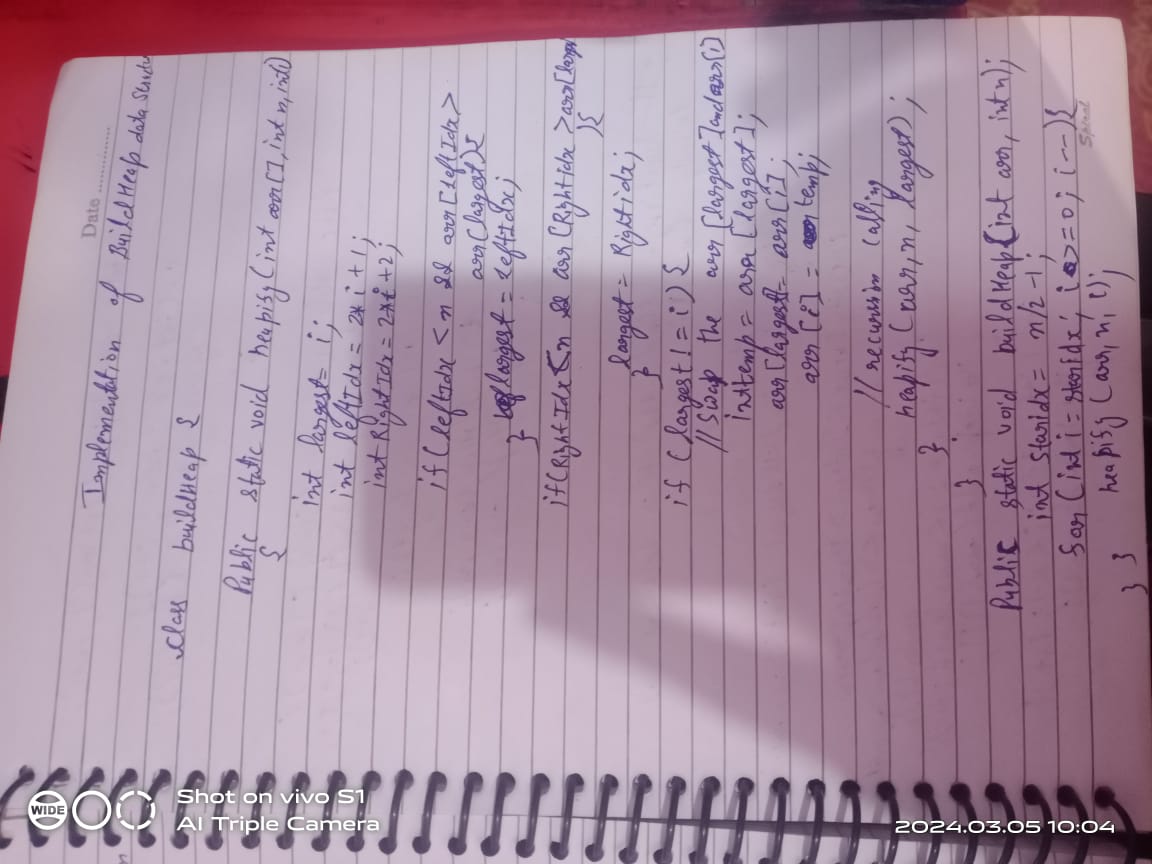 Date ............
Implementation of BuildHeap data Structu
Class buildHeap {
Public static void heapify (int arr[], int n, int i)
{
int largest = i;
int leftIdx = 2*i + 1;
int RightIdx = 2*i + 2;
if (leftIdx < n && arr[leftIdx >
arr[largest){
largest = leftIdx;
}
if(RightIdx < n && arr[Rightidx > arr[larges
){
largest = Rightidx;
}
if (largest != i) {
// Swap the arr[largest] and arr[i]
int temp = arr[largest];
arr[largest = arr[i];
arr[i] = temp;
// recursion calling
heapify (arr, n, largest);
}
}
Public static void buildHeap(int arr, int n);
int staridx = n/2 - 1;
for (int i = staridx; i >= 0; i--){
heapify (arr, n, i);
} }
Spiral
WIDE
Shot on vivo S1
AI Triple Camera
2024.03.05 10:04